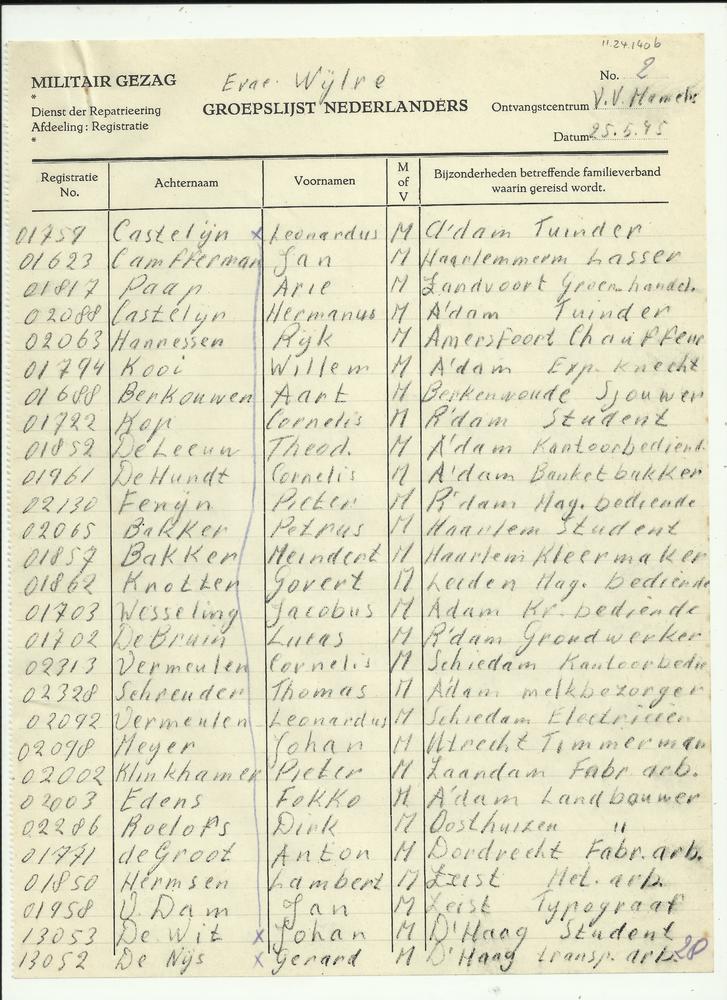 11.24.1406
MILITAIR GEZAG
Evac. Wijlre
No. 2
*
Dienst der Repatrieering
GROEPSLIJST NEDERLANDERS
Ontvangstcentrum V.V. Hamels
Afdeeling: Registratie
*
Datum 25.5.45
Registratie No. Achternaam Voornamen M of V Bijzonderheden betreffende familieverband waarin gereisd wordt.
01759 Castelijn x Leonardus M A'dam Tuinder
01623 Camfferman Jan M Haarlemmerm Lasser
01817 Paap Arie M Zandvoort Groen.handel.
02088 Castelyn Hermanus M A'dam Tuinder
02063 Hannessen Rijk M Amersfoort Chauffeur
01794 Kooi Willem M A'dam Exp. Knecht
01688 Berkouwen Aart M Berkenwoude Sjouwer
01722 Kop Cornelis M R'dam Student
01852 De Leeuw Theod. M A'dam Kantoorbediend.
01961 De Hundt Cornelis M A'dam Banketbakker
02130 Fenijn Pieter M R'dam Mag. bediende
02065 Bakker Petrus M Haarlem Student
01857 Bakker Meindert M Haarlem Kleermaker
01862 Knotter Govert M Leiden Mag. bediende
01703 Wesseling Jacobus M Adam Kr. bediende
01702 De Bruin Lucas M R'dam Grondwerker
02313 Vermeulen Cornelis M Schiedam Kantoorbedie
02328 Schreuder Thomas M A'dam melkbezorger
02092 Vermeulen Leonardus M Schiedam Electriciën
02098 Meyer Johan M Utrecht Timmerman
02002 Klinkhamer Pieter M Zaandam Fabr. arb.
02003 Edens Fokko M A'dam Landbouwer
02286 Roelofs Dirk M Oosthuizen "
01771 de Groot Anton M Dordrecht Fabr. arb.
01850 Hermsen Lambert M Zeist Met. arb.
01958 V. Dam Jan M Zeist Typograaf
13053 De Wit x Johan M D'Haag Student
13052 De Nijs x Gerard M D'Haag transp. arb. 28